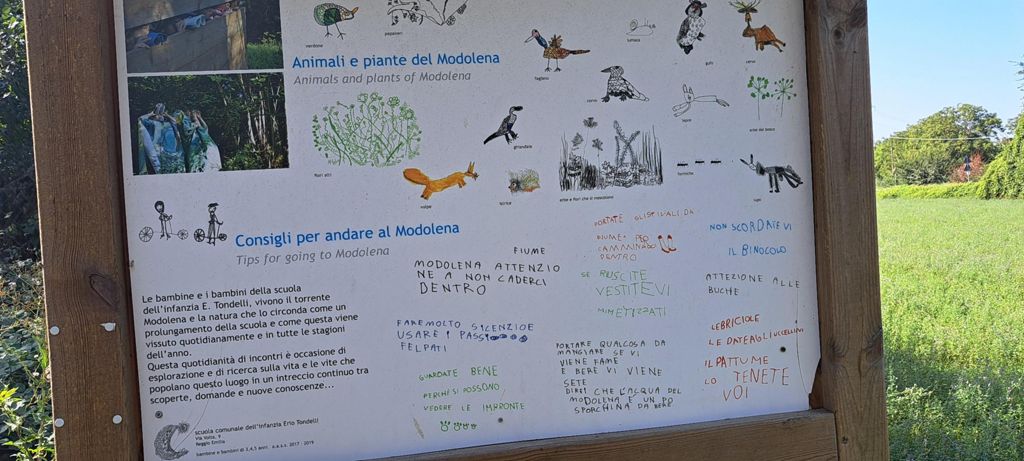 verdone
papaveri
Animali e piante del Modolena
Animals and plants of Modolena
fagiano
lumaca
gufo
cervo
corvo
lepre
erbe del bosco
fiori alti
ghiandaia
volpe
istrice
erbe e fiori che si mescolano
formiche
lupo
Consigli per andare al Modolena
Tips for going to Modolena
Le bambine e i bambini della scuola
dell'infanzia E. Tondelli, vivono il torrente
Modolena e la natura che lo circonda come un
prolungamento della scuola e come questa viene
vissuto quotidianamente e in tutte le stagioni
dell'anno.
Questa quotidianità di incontri è occasione di
esplorazione e di ricerca sulla vita e le vite che
popolano questo luogo in un intreccio continuo tra
scoperte, domande e nuove conoscenze...
scuola comunale dell'infanzia Erio Tondelli
Via Volta, 9
Reggio Emilia
bambine e bambini di 3,4,5 anni a.s.s. 2017 - 2019
FIUME
MODOLENA ATTENZIO
NE A NON CADERCI
DENTRO
FARE MOLTO SILENZIO E
USARE I PASSI
FELPATI
GUARDATE BENE
PERCHÈ SI POSSONO
VEDERE LE IMPRONTE
PORTATE GLI STIVALI DA
FIUME PER
CAMMINARCI
DENTRO
SE RIUSCITE
VESTITEVI
MIMETIZZATI
PORTARE QUALCOSA DA
MANGIARE SE VI
VIENE FAME
E BERE VI VIENE
SETE
DIREI CHE L'ACQUA DEL
MODOLENA È UN PO
SPORCHINA DA BERE
NON SCORDATEVI
IL BINOCOLO
ATTEZIONE ALLE
BUCHE
LE BRICIOLE
LE DATE AGLI UCCELLINI
IL PATTUME
LO TENETE
VOI